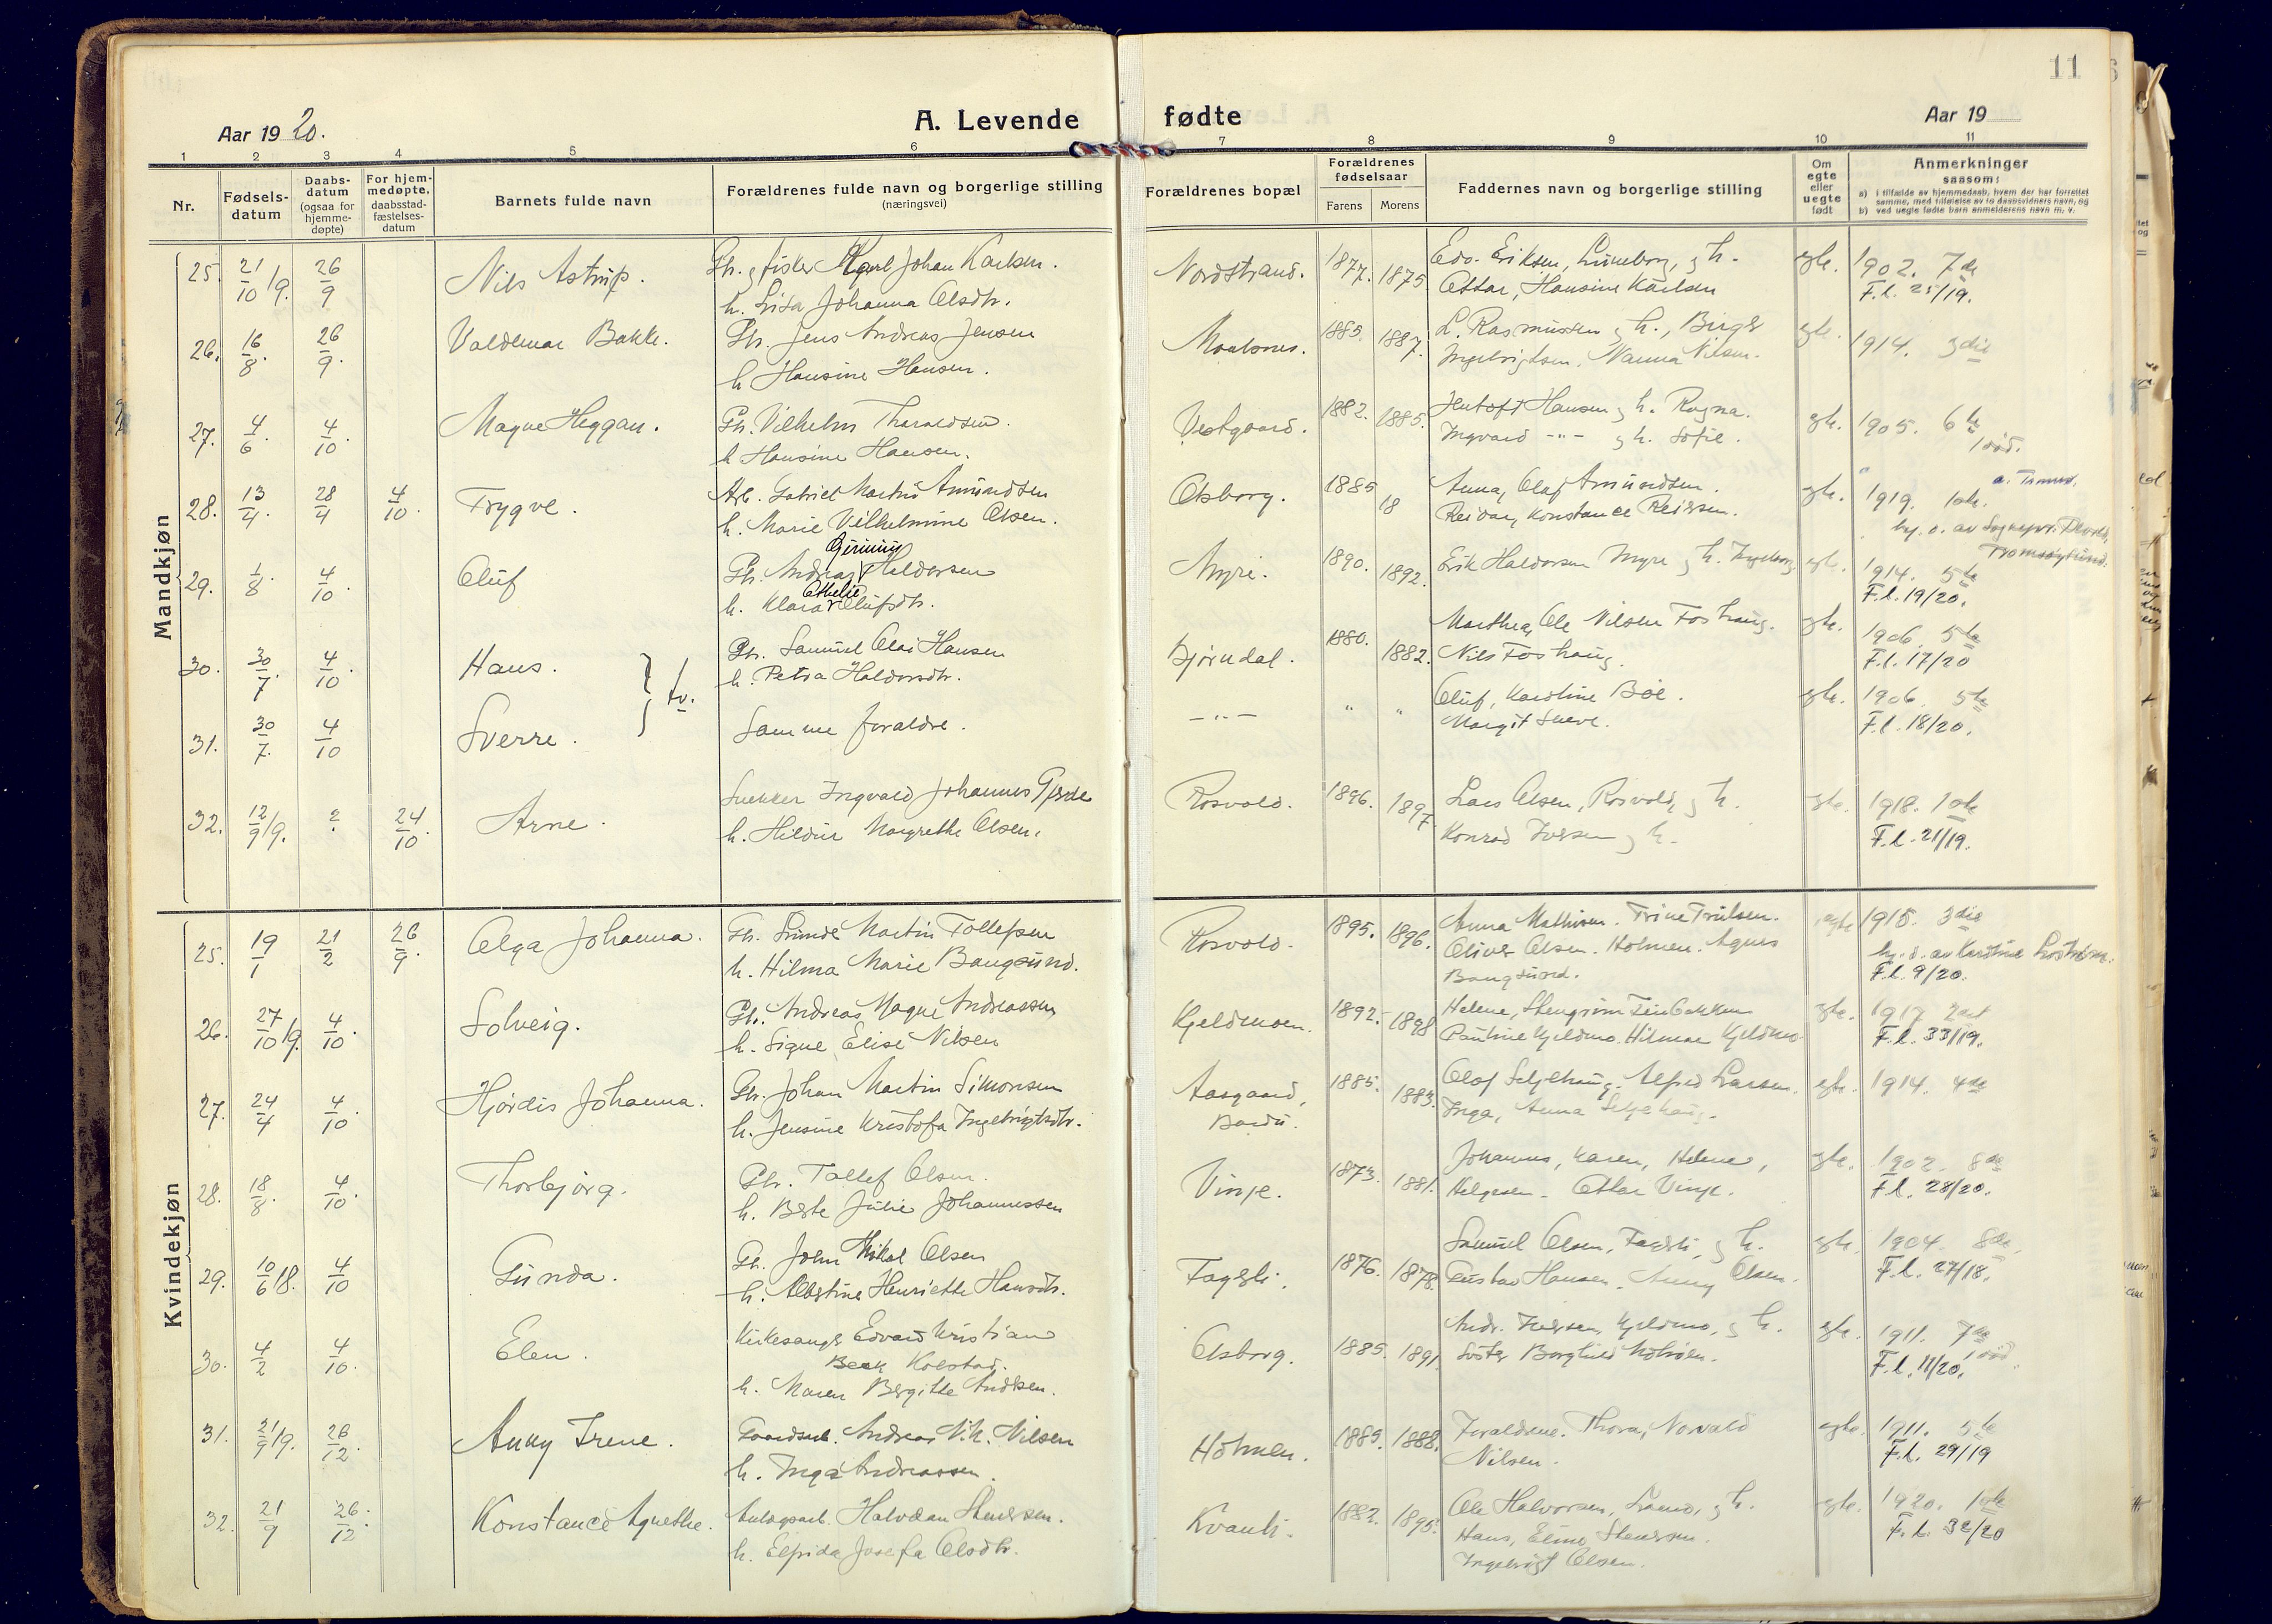 11
Aar 19 20.
A. Levende fødte
Aar 19
1 2 3 4 5 6 7 8 9 10 11
Nr.
Fødsels-
datum
Daabs-
datum
(ogsaa for
hjemme-
døpte)
For hjem-
medøpte,
daabsstad-
fæstelses-
datum
Barnets fulde navn
Forældrenes fulde navn og borgerlige stilling
(næringsvei)
Forældrenes bopæl
Forældrenes
fødselsaar
Farens Morens
Faddernes navn og borgerlige stilling
Om
egte
eller
uegte
født
Anmerkninger
saasom:
a) i tilfælde av hjemmedaab, hvem der har forrettet
samme, med tilføielse av to daabsvidners navn, og
b) ved uegte fødte barn anmelderens navn m. v.
Mandkjøn
25. 21/10 19. 26/9 Nils Astrup. Gbr. og fisker Karl Johan Karlsen. Nordstrand. 1877. 1875 Edv. Eriksen, Luneborg, og h. egte. 1902. 7de
h. Lisa Johanna Olsdtr. Ottar, Hansine Karlsen F.l. 25/19.
26. 16/8. 26/9. Valdemar Bakke. Gbr. Jens Andreas Jensen Moalsnes. 1885. 1887. L. Rasmussen og h., Birger egte. 1914. 3die
h. Hansine Hansen. Ingebrigtsen, Nanna Nilsen.
27. 4/6. 4/10. Magne Heggan. Gbr. Vilhelm Tharaldsen. Vestgaard. 1882. 1885. Hansen og h. Ragna. egte. 1905. 6te
h. Hansine Hansen. Ingvard -"- og h. Sofie. 1 död.
28. 13/4. 28/4 4/10. Trygve. Arb. Gabriel Martin Amundsen Olsborg. 1885 18 Anna, Olaf Amundsen. egte. 1919. 1ste.
h. Marie Vilhelmine Olsen. Reidar, Konstance Reiersen.
29. 1/8. 4/10. Oluf Gbr. Andreas Haldorsen Myre. 1890. 1892. Erik Haldorsen Myre og h. Ingeborg egte. 1914. 5te
h. Klara Olufsdtr. F.l. 19/20.
30. 30/7. 4/10 Hans. } tv. Gbr. Samuel Olai Hansen Bjørndal. 1880. 1882. Marthea, Ole Nilsen Foshaug. egte. 1906. 5te
h. Petra Haldorsdtr. Nils Foshaug. F.l. 17/20
31. 30/7. 4/10 Sverre. Samme foraldre. -"- " " Oluf, Karoline Böe. egte. 1906. 5te
Margit F.l. 18/20.
32. 12/9 19. ? 24/10. Arne. Snekker Ingvald Johannes Gjerde Rosvold. 1896. 1897 Lars Olsen, Rosvold, og h. egte. 1918. 1ste
h. Hildur Margrethe Olsen. Konrad Iversen og h. F.l. 21/19.
Kvindekjøn
25. 19/1 21/2 26/9. Olga Johanna. Gbr. Martin Tollefsen Rosvold. 1895. 1896. Anna Mathisen. Trine Trulsen. egte 1915. 3die
h. Hilma Marie Bangsund. Oliver Olsen. Holmen. Agnes
Bangsund. F.l. 9/20.
26. 27/10 19. 4/10. Solveig. Gbr. Andreas Magne Andreassen Kjeldmoen. 1892. 1898 Helene, egte. 1917 2det
h. Signe Elise Nilsen Pauline Kjeldmo. Hilmar Kjeldmo F.l. 33/19.
27. 24/4 4/10. Hjördis Johanna. Gbr. Johan Martin Simonsen Aasgaard, 1885. 1883. Olaf Seljehaug. Alfred Larsen. egte. 1914. 4de
h. Jensine Kristofa Ingebrigtsdtr. Bardu. Inga, Anna Seljehaug.
28. 18/8. 4/10. Thorbjörg. Gbr. Tollef Olsen. Vinje. 1873. 1881. Johannes, Karen, Helene, egte. 1902. 8de
h. Berte Julie Johannessen Helgesen. Ottar Vinje. F.l. 28/20.
29. 10/6 18. 4/10 Gunda. Gbr. John Mikal Olsen Fagerli. 1876. 1878. Samuel Olsen, Fagerli, og h. egte. 1904. 8de.
h. Albertine Henriette Hansdtr. Gustav Hansen. Anny Olsen. F.l. 27/18.
30. 4/2 4/10. Elen. Kirkesanger Edvard Kristian Olsborg. 1885. 1891 Andr. Iversen Kjeldmo, og h. egte. 1911. 7de
Beck Kolstad. Söster Borghild F.l. 11/20. 1 död.
h. Maren Bergitte Andersen.
31. 21/9 19. 26/12. Anny Irene. Gaardsarb. Andreas N.K. Nilsen Holmen. 1889. 1888. Foraldrene. Thora, Norvald egte. 1911. 5te
h. Inga Andreassen. Nilsen. F.l. 29/19
32. 21/9 26/12. Konstance Agnethe. Anlægsarb. Halvdan Stenersen. Kvanli. 1882. 1895. Ole Halvorsen, og h. egte. 1920. 1ste
h. Elfrida Josefa Olsdtr. Hans, Eline Stenersen. F.l. 32/20
Ingebrigt Olsen.